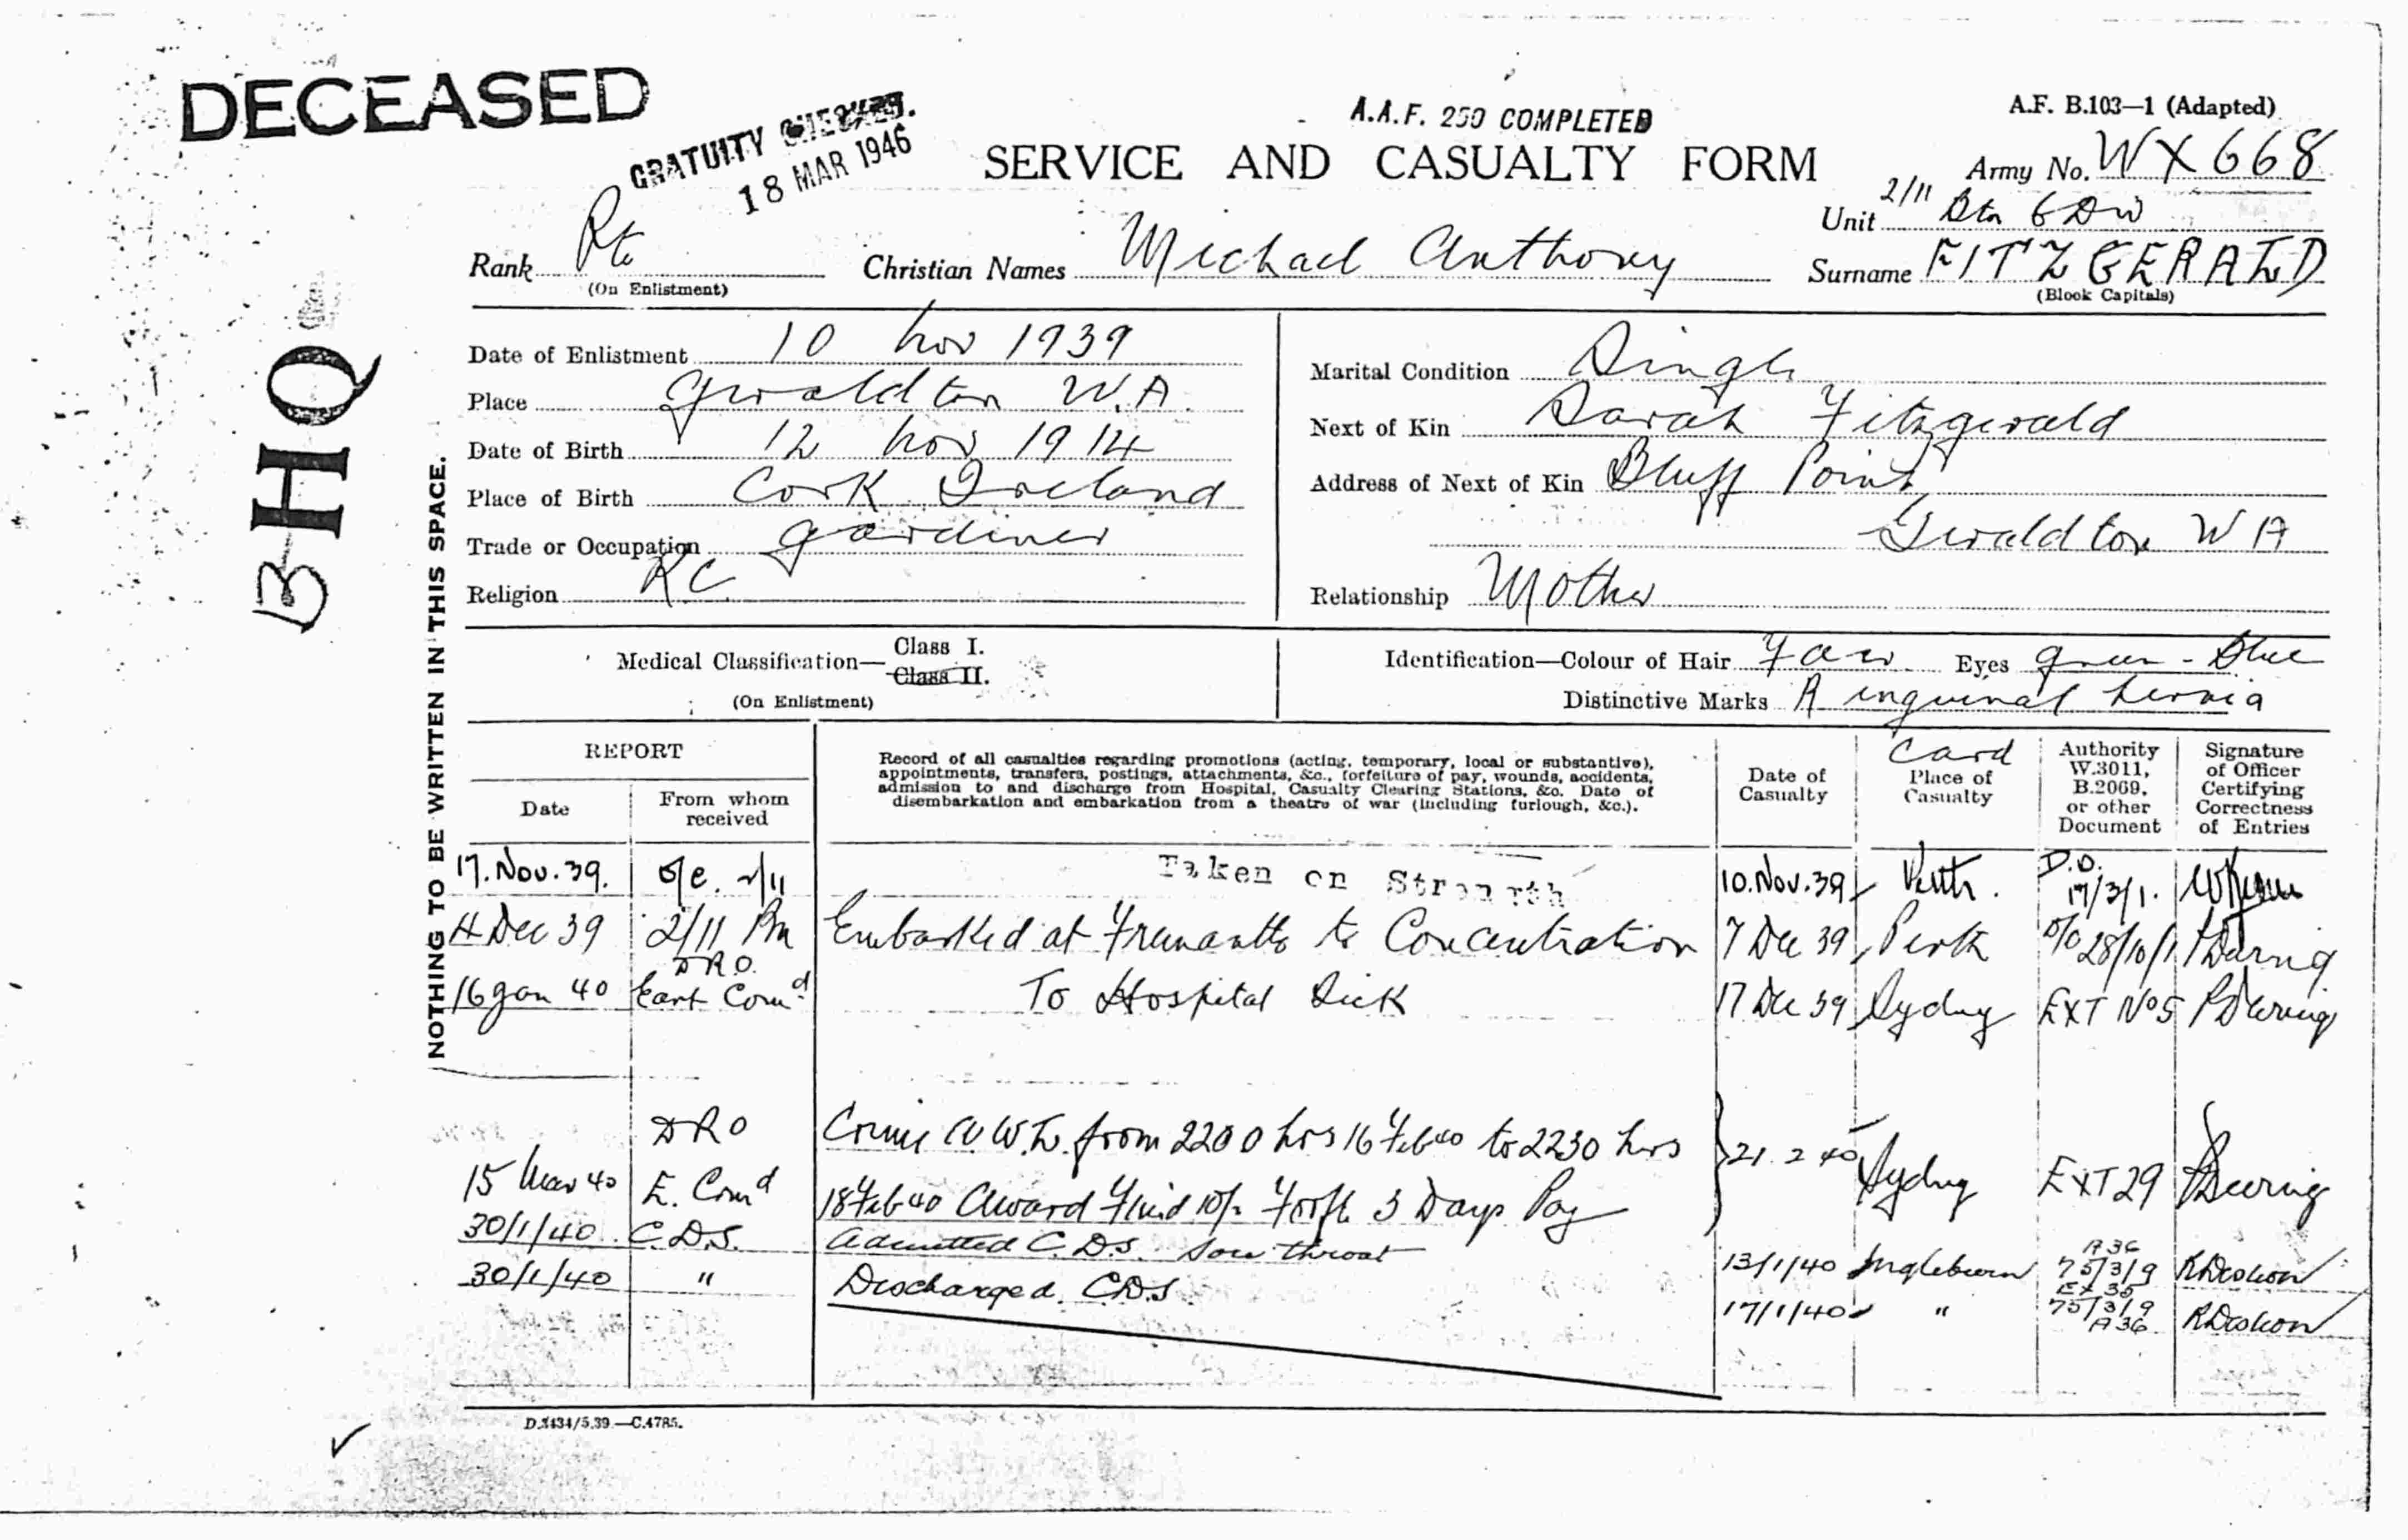 DECEASED
GRATUITY CHECKED.
18 MAR 1946
A.A.F. 250 COMPLETED
A.F. B.103—1 (Adapted)
SERVICE AND CASUALTY FORM
Army No. WX668
Unit 2/11 Btn 6 Div
Rank Pte
(On Enlistment)
Christian Names Michael Anthony
Surname FITZGERALD
(Block Capitals)
BHQ
NOTHING TO BE WRITTEN IN THIS SPACE.
Date of Enlistment 10 Nov 1939
Place Geraldton W.A.
Date of Birth 12 Nov 1914
Place of Birth Cork Ireland
Trade or Occupation gardiner
Religion RC
Marital Condition Single
Next of Kin Sarah Fitzgerald
Address of Next of Kin Bluff Point
Geraldton WA
Relationship Mother
Medical Classification— Class I.
Class II.
(On Enlistment)
Identification—Colour of Hair Fair Eyes green - blue
Distinctive Marks R inguinal hernia
REPORT
Date
From whom received
Record of all casualties regarding promotions (acting, temporary, local or substantive),
appointments, transfers, postings, attachments, &c., forfeiture of pay, wounds, accidents,
admission to and discharge from Hospital, Casualty Clearing Stations, &c. Date of
disembarkation and embarkation from a theatre of war (including furlough, &c.).
Date of Casualty
Card
Place of Casualty
Authority W.3011, B.2069, or other Document
Signature of Officer Certifying Correctness of Entries
17. Nov. 39. o/c. 2/11 Taken on Strength 10. Nov. 39 Perth. D.O. 17/3/1.
4 Dec 39 2/11 Bn Embarked at Fremantle to Concentration 7 Dec 39 Perth D/O 28/10/1
DRO
16 Jan 40 East Comd To Hospital Sick 17 Dec 39 Sydney EXT No 5
DRO Crime A.W.L. from 2200 hrs 16 Feb 40 to 2230 hrs
15 Mar 40 E. Comd 18 Feb 40 Award Fined 10/- Forft 3 Days Pay 21. 2 40 Sydney EXT 29
30/1/40 C.D.S. Admitted C.D.S. Sore throat 13/1/40 Ingleburn A36 75/3/9
30/1/40 " Discharged C.D.S. 17/1/40 " EX 36 75/3/9 A36
D.3434/5.39.—C.4785.